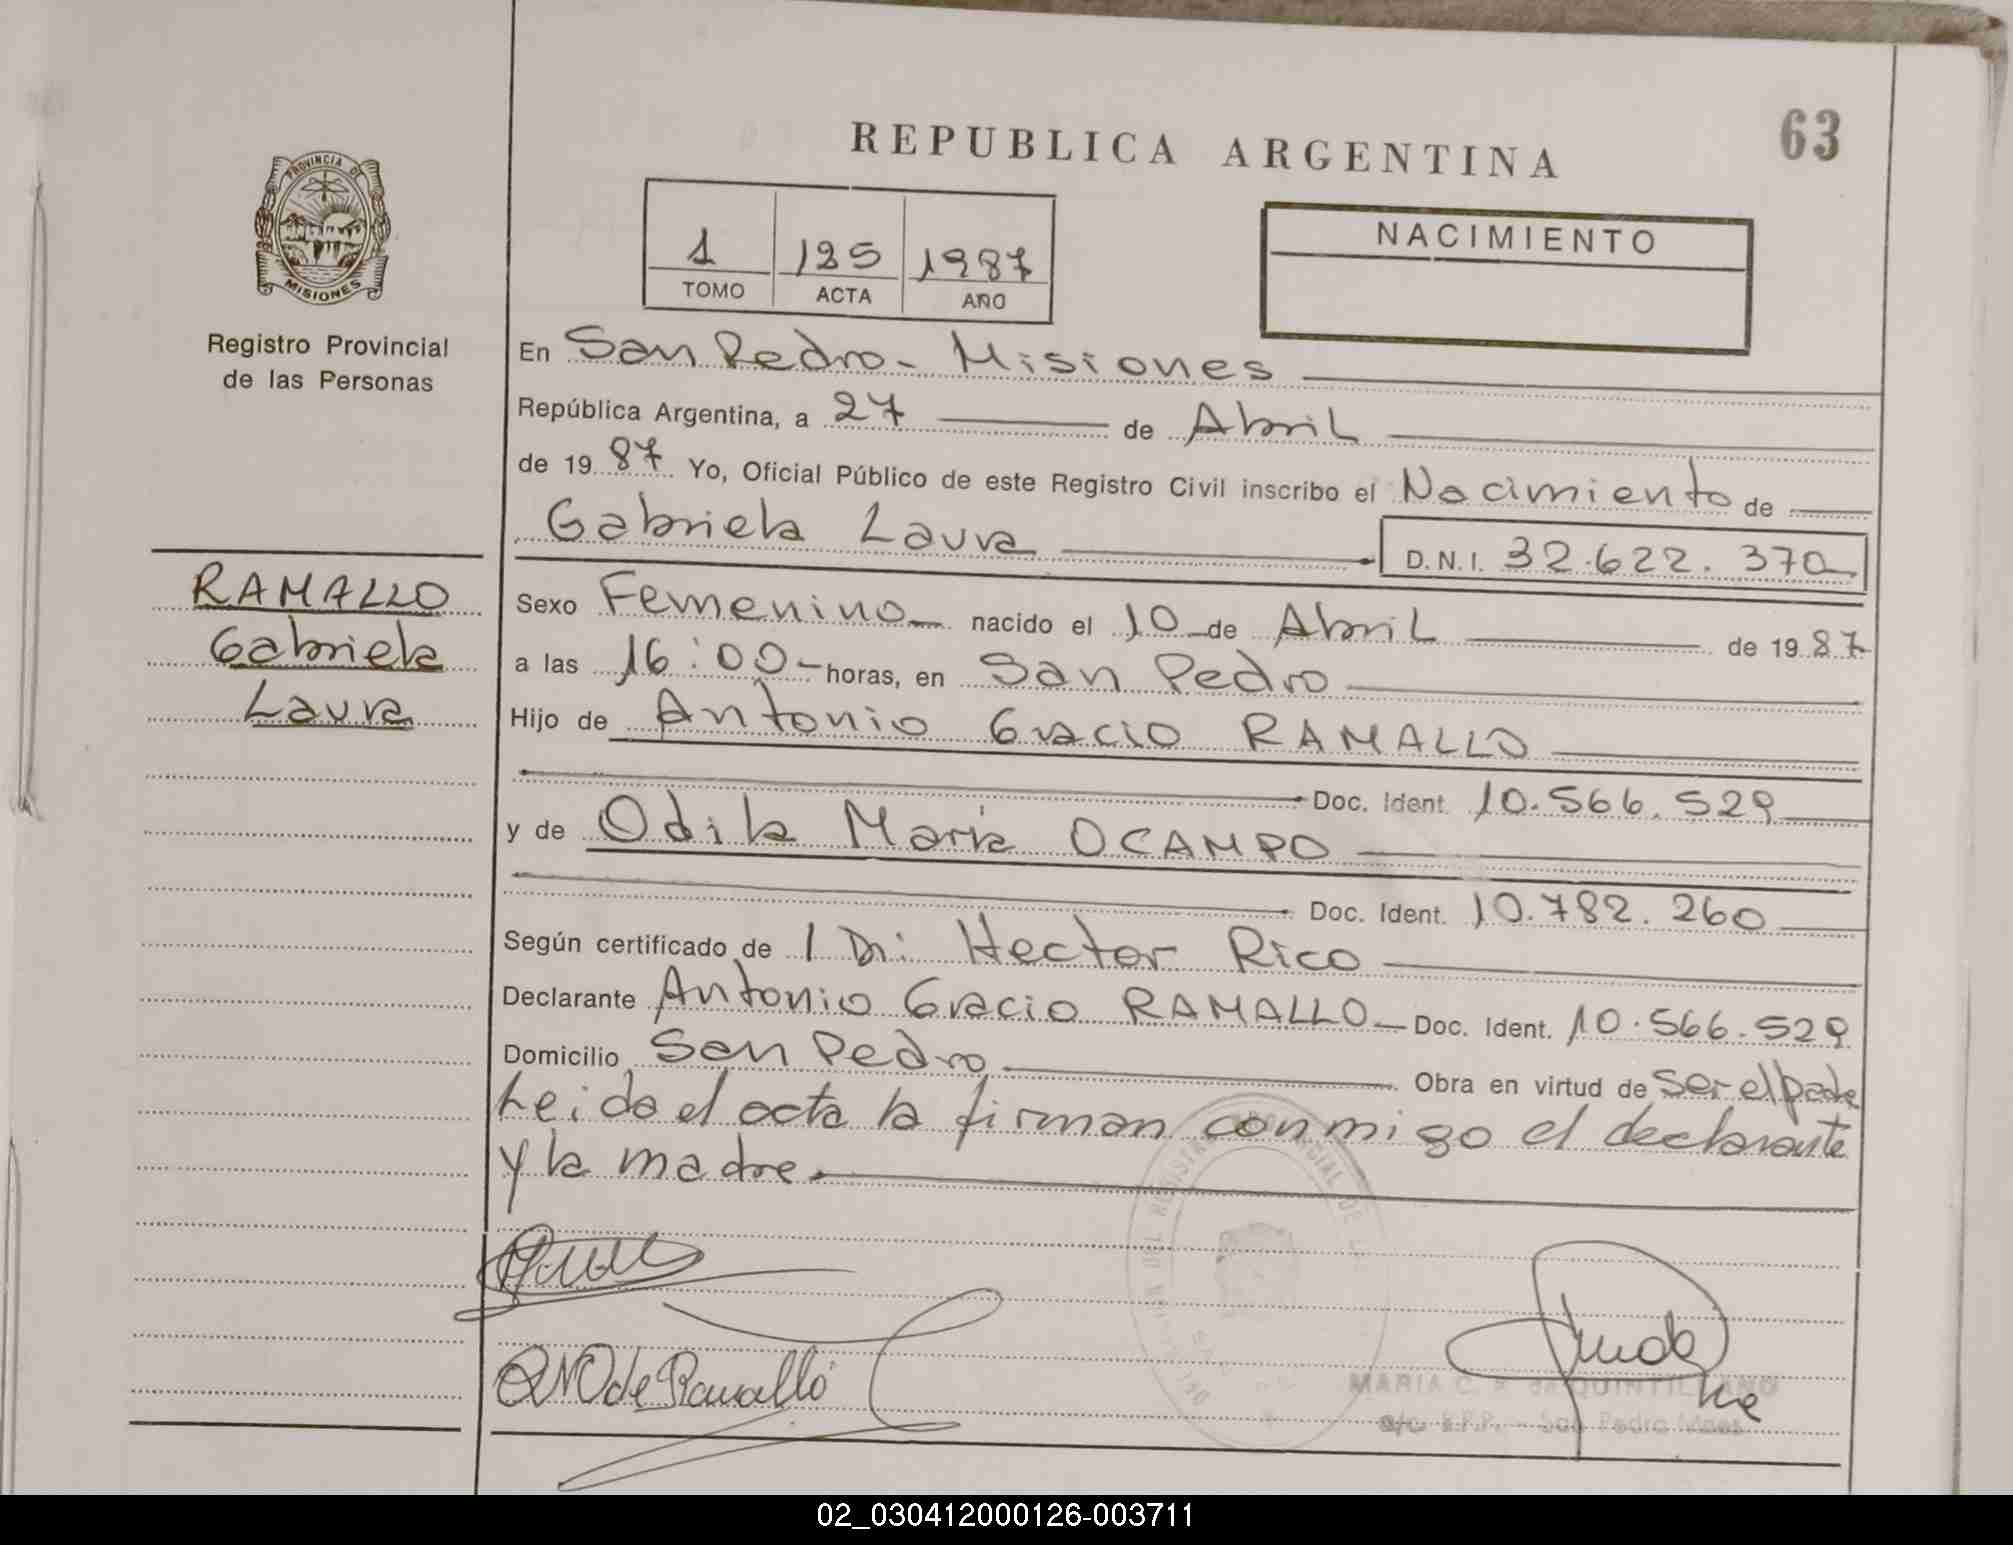 63
REPUBLICA ARGENTINA
PROVINCIA DE
MISIONES
Registro Provincial
de las Personas
1 125 1987
TOMO ACTA AÑO
NACIMIENTO
En San Pedro - Misiones
República Argentina, a 27 de Abril
de 19 87 Yo, Oficial Público de este Registro Civil inscribo el Nacimiento de
Gabriela Laura D.N.I. 32.622.370
RAMALLO
Gabriela
Laura
Sexo Femenino nacido el 10 de Abril de 19 87
a las 16:00 horas, en San Pedro
Hijo de Antonio Gracio RAMALLO
Doc. Ident. 10.566.529
y de Odila María OCAMPO
Doc. Ident. 10.782.260
Según certificado de 1 Dr: Hector Rico
Declarante Antonio Gracio RAMALLO Doc. Ident. 10.566.529
Domicilio San Pedro Obra en virtud de ser el padre
Leida el acta la firman conmigo el declarante
y la madre
de Ramallo
MARIA C. de QUINTILIANO
a/c R.P.P. - San Pedro Mnes
02_030412000126-003711